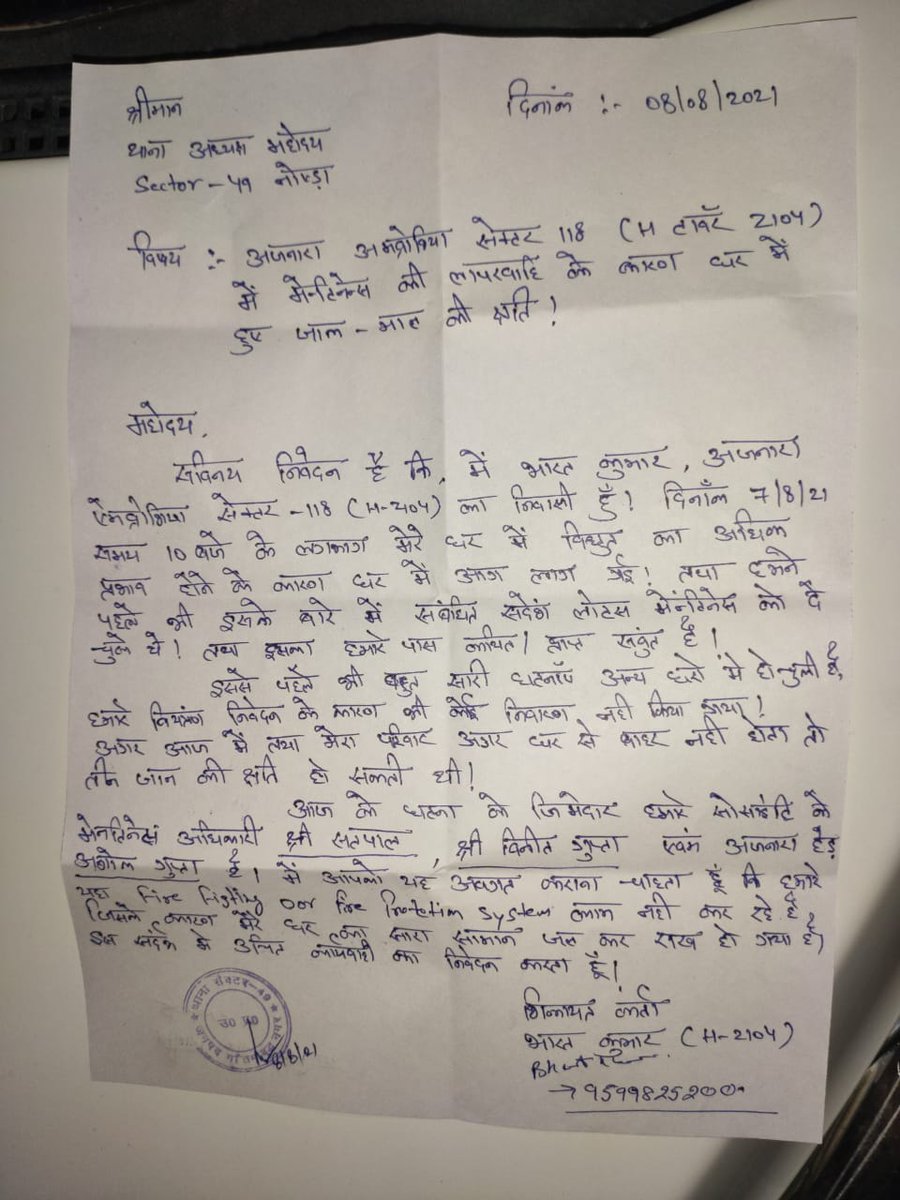 श्रीमान
दिनांक :- 08/08/2021
थाना अध्यक्ष महोदय
Sector - 49 नोएडा
विषय :- अजनारा अमब्रोशिया सेक्टर 118 (H टावॅर 2104)
में मेन्टिनेन्स की लापरवाहि के कारण घर में
हुए जाल - माल की क्षति !
महोदय,
सविनय निवेदन है कि, में भारत कुमार, अजनारा
एमब्रोशिया सेक्टर - 118 (H-2104) का निवासी हूँ ! दिनाँक 7/8/21
समय 10 बजे के लगभग मेरे घर में विधुत का अधिक
प्रभाव होने के कारण घर में आग लग गई ! तथा हमने
पहले भी इसके बारे में संबंधित संदेश लोटस मेंनटिनेस को दे
चुके थे ! तथा इसका हमारे पास प्राप्त सबुत है !
इससे पहले भी बहुत सारी घटनाएँ अन्य घरो मे हो चुकी है,
हमारे निवेदन के कारण भी कोई निवारण नही किया गया !
अगर आज में तथा मेरा परिवार अगर घर से बाहर नही होता तो
तीन जान की क्षति हो सकती थी !
आज के घटना के जिमेदार हमारे सोसाइटि के
मेनटिनेन्स अधिकारी श्री सतपाल, श्री विनीत गुप्ता एवंम अजनारा हेड
अशोक गुप्ता है। में आपको यह अवगत कराना चाहता हूँ कि हमारे
यहा Fire Fighting or Fire Protection System काम नही कर रहे है
जिसके कारण मेरे घर का सारा सामान जल कर राख हो गया है।
इस संदर्भ मे उचित कार्यवाही का निवेदन करता हूँ।
शिकायत कर्ता
भारत कुमार (H-2104)
थाना सेक्टर-49
उ० प्र०
8/8/21